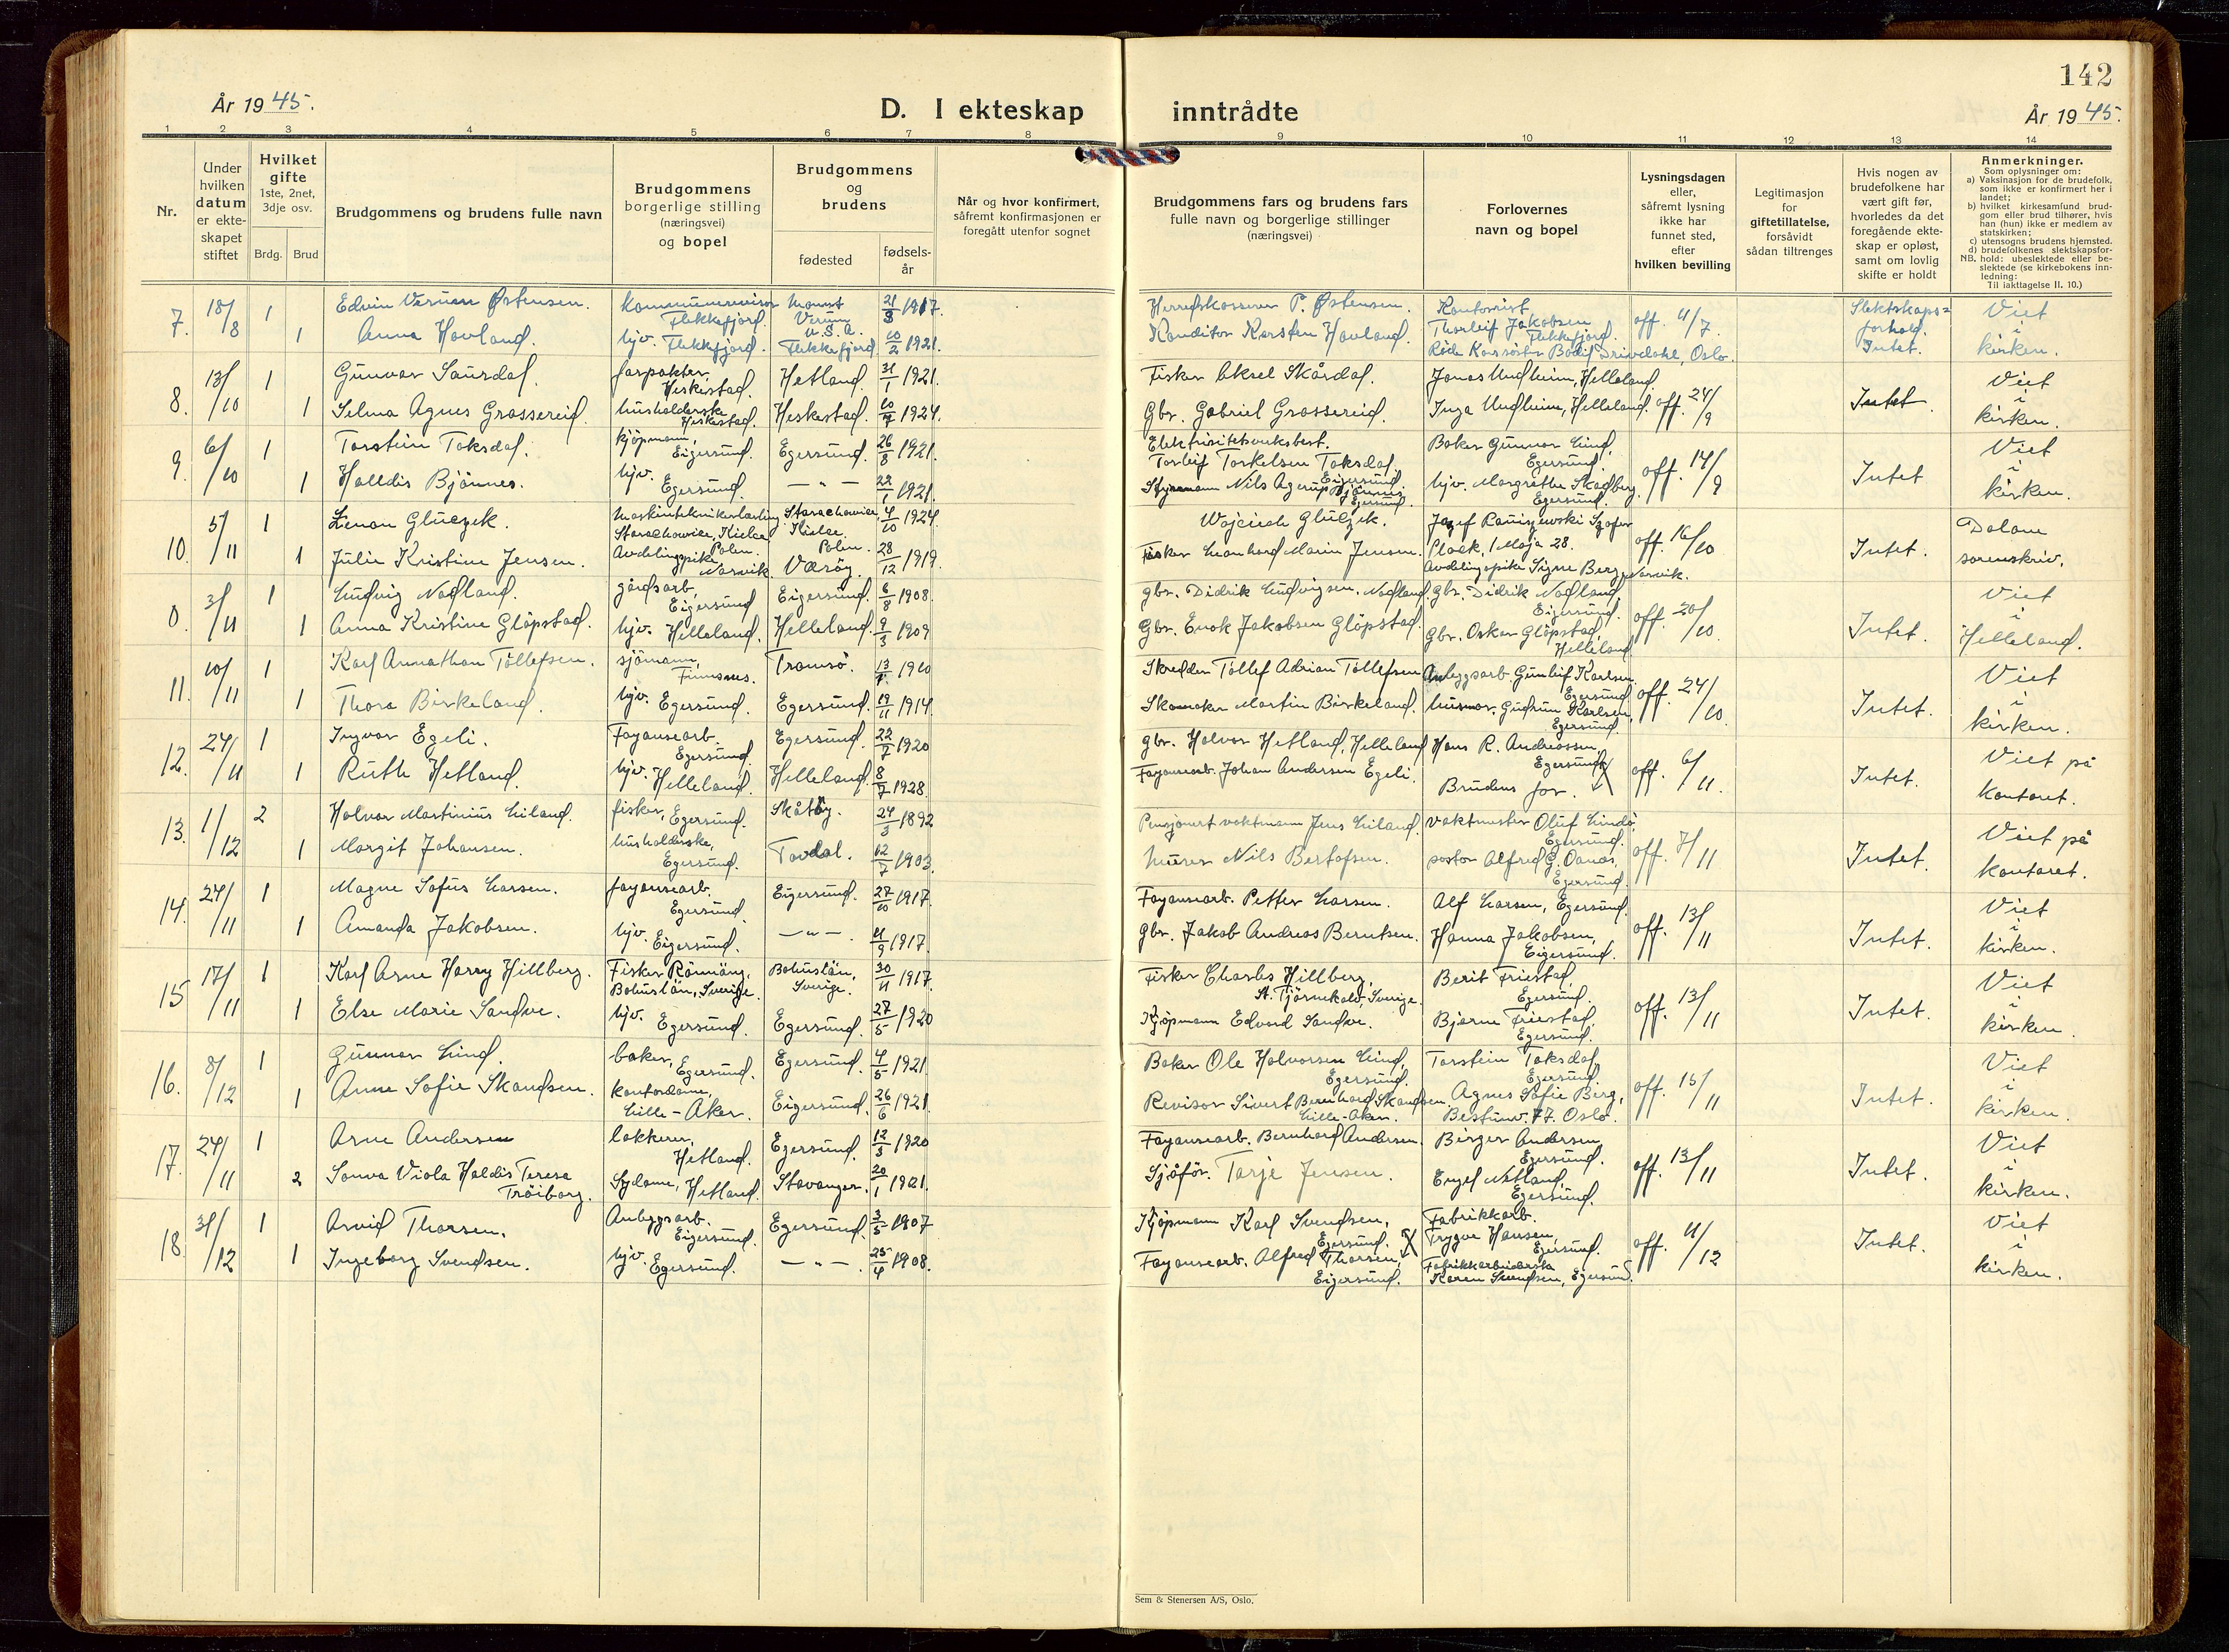 142
År 1945.
D. I ekteskap inntrådte
År 1945.
1 2 3 4 5 6 7 8 9 10 11 12 13 14
Nr.
Under hvilken datum er ekteskapet stiftet
Hvilket gifte
1ste, 2net, 3dje osv.
Brdg. Brud
Brudgommens og brudens fulle navn
Brudgommens borgerlige stilling (næringsvei) og bopel
Brudgommens og brudens
fødested
fødselsår
Når og hvor konfirmert, såfremt konfirmasjonen er foregått utenfor sognet
Brudgommens fars og brudens fars fulle navn og borgerlige stillinger (næringsvei)
Forlovernes navn og bopel
Lysningsdagen eller, såfremt lysning ikke har funnet sted, efter hvilken bevilling
Legitimasjon for giftetillatelse, forsåvidt sådan tiltrenges
Hvis nogen av brudefolkene har vært gift før, hvorledes da det foregående ekteskap er opløst, samt om lovlig skifte er holdt
Anmerkninger.
Som oplysninger om:
a) Vaksinasjon for de brudefolk, som ikke er konfirmert her i landet;
b) hvilket kirkesamfund brudgom eller brud tilhører, hvis han (hun) ikke er medlem av statskirken;
c) utensogns brudens hjemsted.
d) brudefolkenes slektskapsforhold: ubeslektede eller beslektede (se kirkebokens innledning:
NB.
Til iakttagelse II. 10.)
7. 18/8 1 Edvin Verum Østensen. kommunerevisor Flekkefjord. Verum U.S.A. 21/3 1917. Herredskasserer P. Østensen. Kontorist Thorleif Jakobsen Flekkefjord. off. 11/7. Slektskapsforhold. Intet. Viet i kirken.
1 Anna Hovland. hjv. Flekkefjord. Flekkefjord. 10/2 1921. Konditor Karsten Hovland. Oslo.
8. 13/10 1 Gunvar Saurdal. forpakter, Heskestad. Hetland. 31/1 1921. Fisker Aksel Skårdal. Jonas Undheim, Helleland. off. 24/9 Intet. Viet i kirken.
1 Selma Agnes Grassereid. husholderske Heskestad. Heskestad. 10/7 1924. Gbr. Gabriel Grassereid. Inga Undheim, Helleland.
9. 6/10 1 Torstein Toksdal. kjøpmann, Eigersund. Egersund. 26/8 1921. Elektrisitetsverksbest. Torleif Torkelsen Toksdal. Eigersund. Baker Gunnar Lind, Egersund. off. 14/9 Intet Viet i kirken.
1 Halldis Bjønnes. hjv. Egersund. — " — 22/1 1921. Styrmann Nils Agerup Bjønnes Egersund. hjv. Margrethe Skadberg. Egersund.
10. 5/11 1 Zenon Gluczek. Maskinteknikerlærling Starachowice, Kielce Polen. Starachowice, Kielce. Polen. 4/10 1924 Wojciech Gluczek. Jozef Szofer Plock, 1 Maja 28. off. 16/10 Intet. Dalane sorenskriv.
1 Julie Kristine Jensen. Avdelingspike Narvik. Værøy. 28/12 1919. Fisker Leonhard Marin Jensen. Avdelingspike Signe Berg, Narvik.
0. 3/11 1 Ludvig Nodland. gårdsarb. Eigersund Eigersund. 6/8 1908. Gbr. Didrik Ludvigsen. Nodland. Gbr. Didrik Nodland. Eigersund. off. 20/10. Intet. Viet i Helleland.
1 Anna Kristine Gløpstad. hjv. Helleland. Helleland. 9/3 1909 Gbr. Enok Jakobsen Gløpstad. Gbr. Oskar Gløpstad, Helleland
11. 10/11 1 Karl Annathon Tollefsen. sjømann, Finnsnes. Tromsø. 1910 Skredder Tollef Adrian Tollefsen Anleggsarb. Gunleif Karlsen. Egersund off. 24/10 Intet. Viet i kirken.
1 Thora Birkeland. hjv. Egersund. Egersund. 19/11 1914. Skomaker Martin Birkeland. husmor. Gudrun Karlsen, Egersund.
12. 24/11 1 Ingvar Egeli. Fayansearb. Egersund. Egersund. 22/7 1920 Gbr. Halvor Hetland, Helleland Hans R. Andreassen, Egersund off. 6/11. Intet. Viet på kontoret.
1 Ruth Hetland. hjv. Helleland. Helleland. 8/7 1928. Fayansearb. Johan Andersen Egeli. Brudens far.
13. 1/12 2 Halvor Martinius Liland. fisker, Egersund. Skåtøy. 24/3 1892 Pensjonert vaktmann Jens Liland. vaktmester Oluf Lindø, Egersund. off. 7/11 Intet. Viet på kontoret.
1 Margit Johansen. husholderske, Egersund. Tovdal. 12/7 1903. Murer Nils Bertofsen. pastor Alfred G. Oanæs, Egersund.
14. 24/11 1 Magne Sofus Larsen. fayansearb. Egersund. Eigersund. 27/10 1917. Fayansearb. Petter Larsen. Alf Larsen, Egersund. off. 13/11 Intet. Viet i kirken.
1 Amanda Jakobsen. hjv. Eigersund. — " — 11/9 1917. Gbr. Jakob Andreas Berntsen. Hanna Jakobsen, Eigersund.
15 17/11 1 Karl Arne Harry Hillberg. Fisker Rönnäng, Bohuslän, Sverige. Bohuslän, Sverige. 30/11 1917. Fisker Charles Hillberg, St. Tjörnekalv, Sverige. Berit Friestad, Egersund. off. 13/11 Intet. Viet i kirken.
1 Else Marie Sandve. hjv. Egersund. Egersund. 27/5 1920 Kjøpmann Edvard Sandve. Bjarne Friestad Egersund.
16. 8/12 1 Gunnar Lind. baker, Egersund. Egersund. 4/5 1921. Baker Ole Halvorsen Lind, Egersund. Torstein Toksdal, Egersund. off. 15/11 Intet. Viet i kirken.
1 Anne Sofie Skandsen. kontordame, Lille-Aker. Eigersund. 26/6 1921. Revisor Sivert Bernhard Skandsen. Lille-Aker. Agnes Sofie Berg, Bestumv. 77. Oslo.
17. 24/11 1 Arne Andersen lakkerer, Hetland. Egersund. 12/3 1920 Fayansearb. Bernhard Andersen. Birger Andersen Egersund. off. 13/11 Intet. Viet i kirken.
2 Sonva Viola Haldis Teresa Trøiborg. Sydame, Hetland. Stavanger. 20/1 1921. Sjåfør. Tarje Jensen. Engel Netland, Egersund.
18. 31/12 1 Arvid Thorsen. Anleggsarb. Eigersund. Egersund. 3/5 1907 Kjøpmann Karl Svendsen, Egersund. Fabrikkarb. Trygve Hansen, Egersund. off. 11/12 Intet. Viet i kirken.
1 Ingeborg Svendsen. hjv. Egersund. — " — 25/4 1908. Fayansearb. Alfred Thorsen, Eigersund. Fabrikkarbeiderske Karen Svendsen, Egersund.
Sem & Stenersen A/S, Oslo.